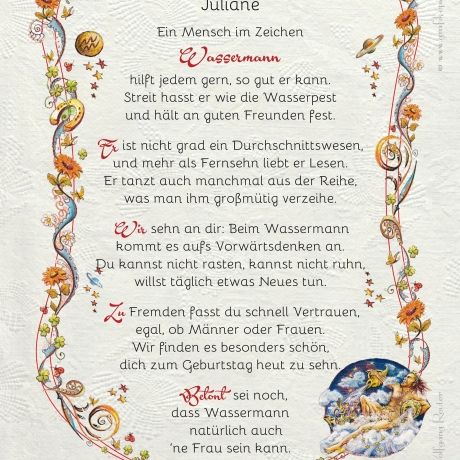 Juliane
Ein Mensch im Zeichen
Wassermann
hilft jedem gern, so gut er kann.
Streit hasst er wie die Wasserpest
und hält an guten Freunden fest.
Er ist nicht grad ein Durchschnittswesen,
und mehr als Fernsehn liebt er Lesen.
Er tanzt auch manchmal aus der Reihe,
was man ihm großmütig verzeihe.
Wir sehn an dir: Beim Wassermann
kommt es aufs Vorwärtsdenken an.
Du kannst nicht rasten, kannst nicht ruhn,
willst täglich etwas Neues tun.
Zu Fremden fasst du schnell Vertrauen,
egal, ob Männer oder Frauen.
Wir finden es besonders schön,
dich zum Geburtstag heut zu sehn.
Betont sei noch,
dass Wassermann
natürlich auch
'ne Frau sein kann.